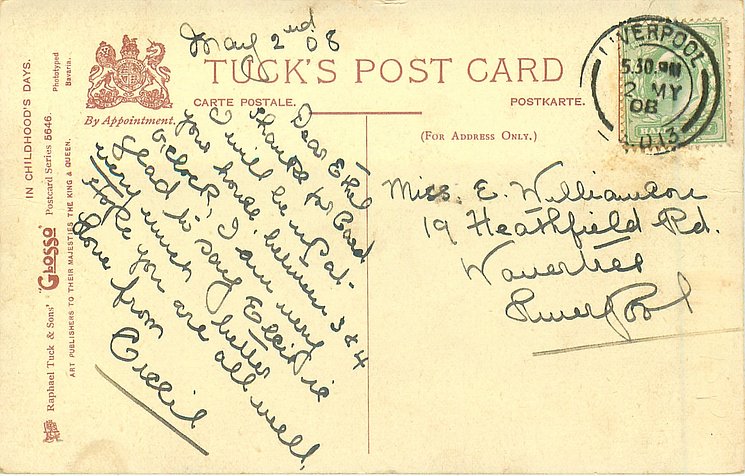 May 2nd 08
TUCK'S POST CARD
CARTE POSTALE.
POSTKARTE.
By Appointment.
(FOR ADDRESS ONLY.)
IN CHILDHOOD'S DAYS.
Phototyped
Bavaria.
Raphael Tuck & Sons' "GLOSSO" Postcard Series 5646.
ART PUBLISHERS TO THEIR MAJESTIES THE KING & QUEEN.
LIVERPOOL
5.30 PM
2 MY
08
Dear Ethel
thanks for Card
I will be up at
you house, between 3 & 4
o'clock, I am very
glad to say is
very much better
hope you are all well,
love from
Miss. E. Williamson
19 Heathfield Rd.
Wavertree
Liverpool